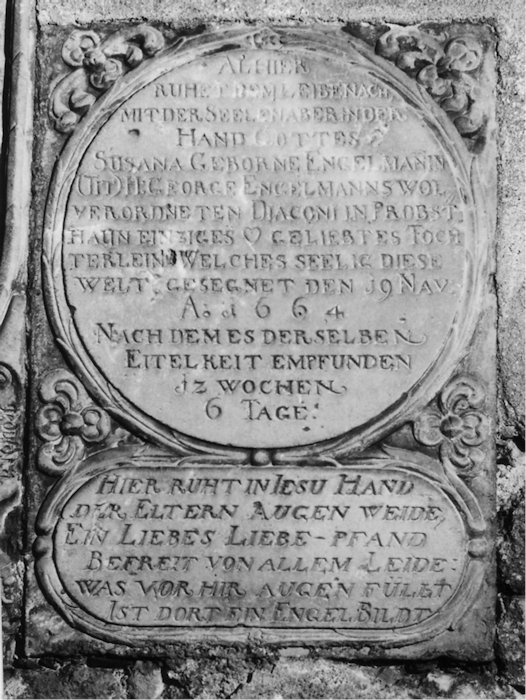 ALHIER
RUHET DEM LEIBE NACH
MIT DER SEELEN ABER IN DER
HAND GOTTES
SUSANA GEBORNE ENGELMAŇIN
(TIT) H GEORGE ENGELMANNS WOL
VERORDNETEN DIACONI IN PROBST
HAIJN EINZIGES ♡ GELIEBTES TOCH
TERLEIN WELCHES SEELIG DIESE
WELT GESEGNET DEN 19 NAV.
A: 1664
NACH DEM ES DERSELBEN
EITELKEIT EMPFUNDEN
12 WOCHEN
6 TAGE.
HIER RUHT IN IESU HAND
DER ELTERN AUGEN WEIDE,
EIN LIEBES LIEBE-PFAND
BEFREIT VON ALLEM LEIDE:
WAS VOR HIR AUGEN FÜLET
IST DORT EIN ENGEL BILDT